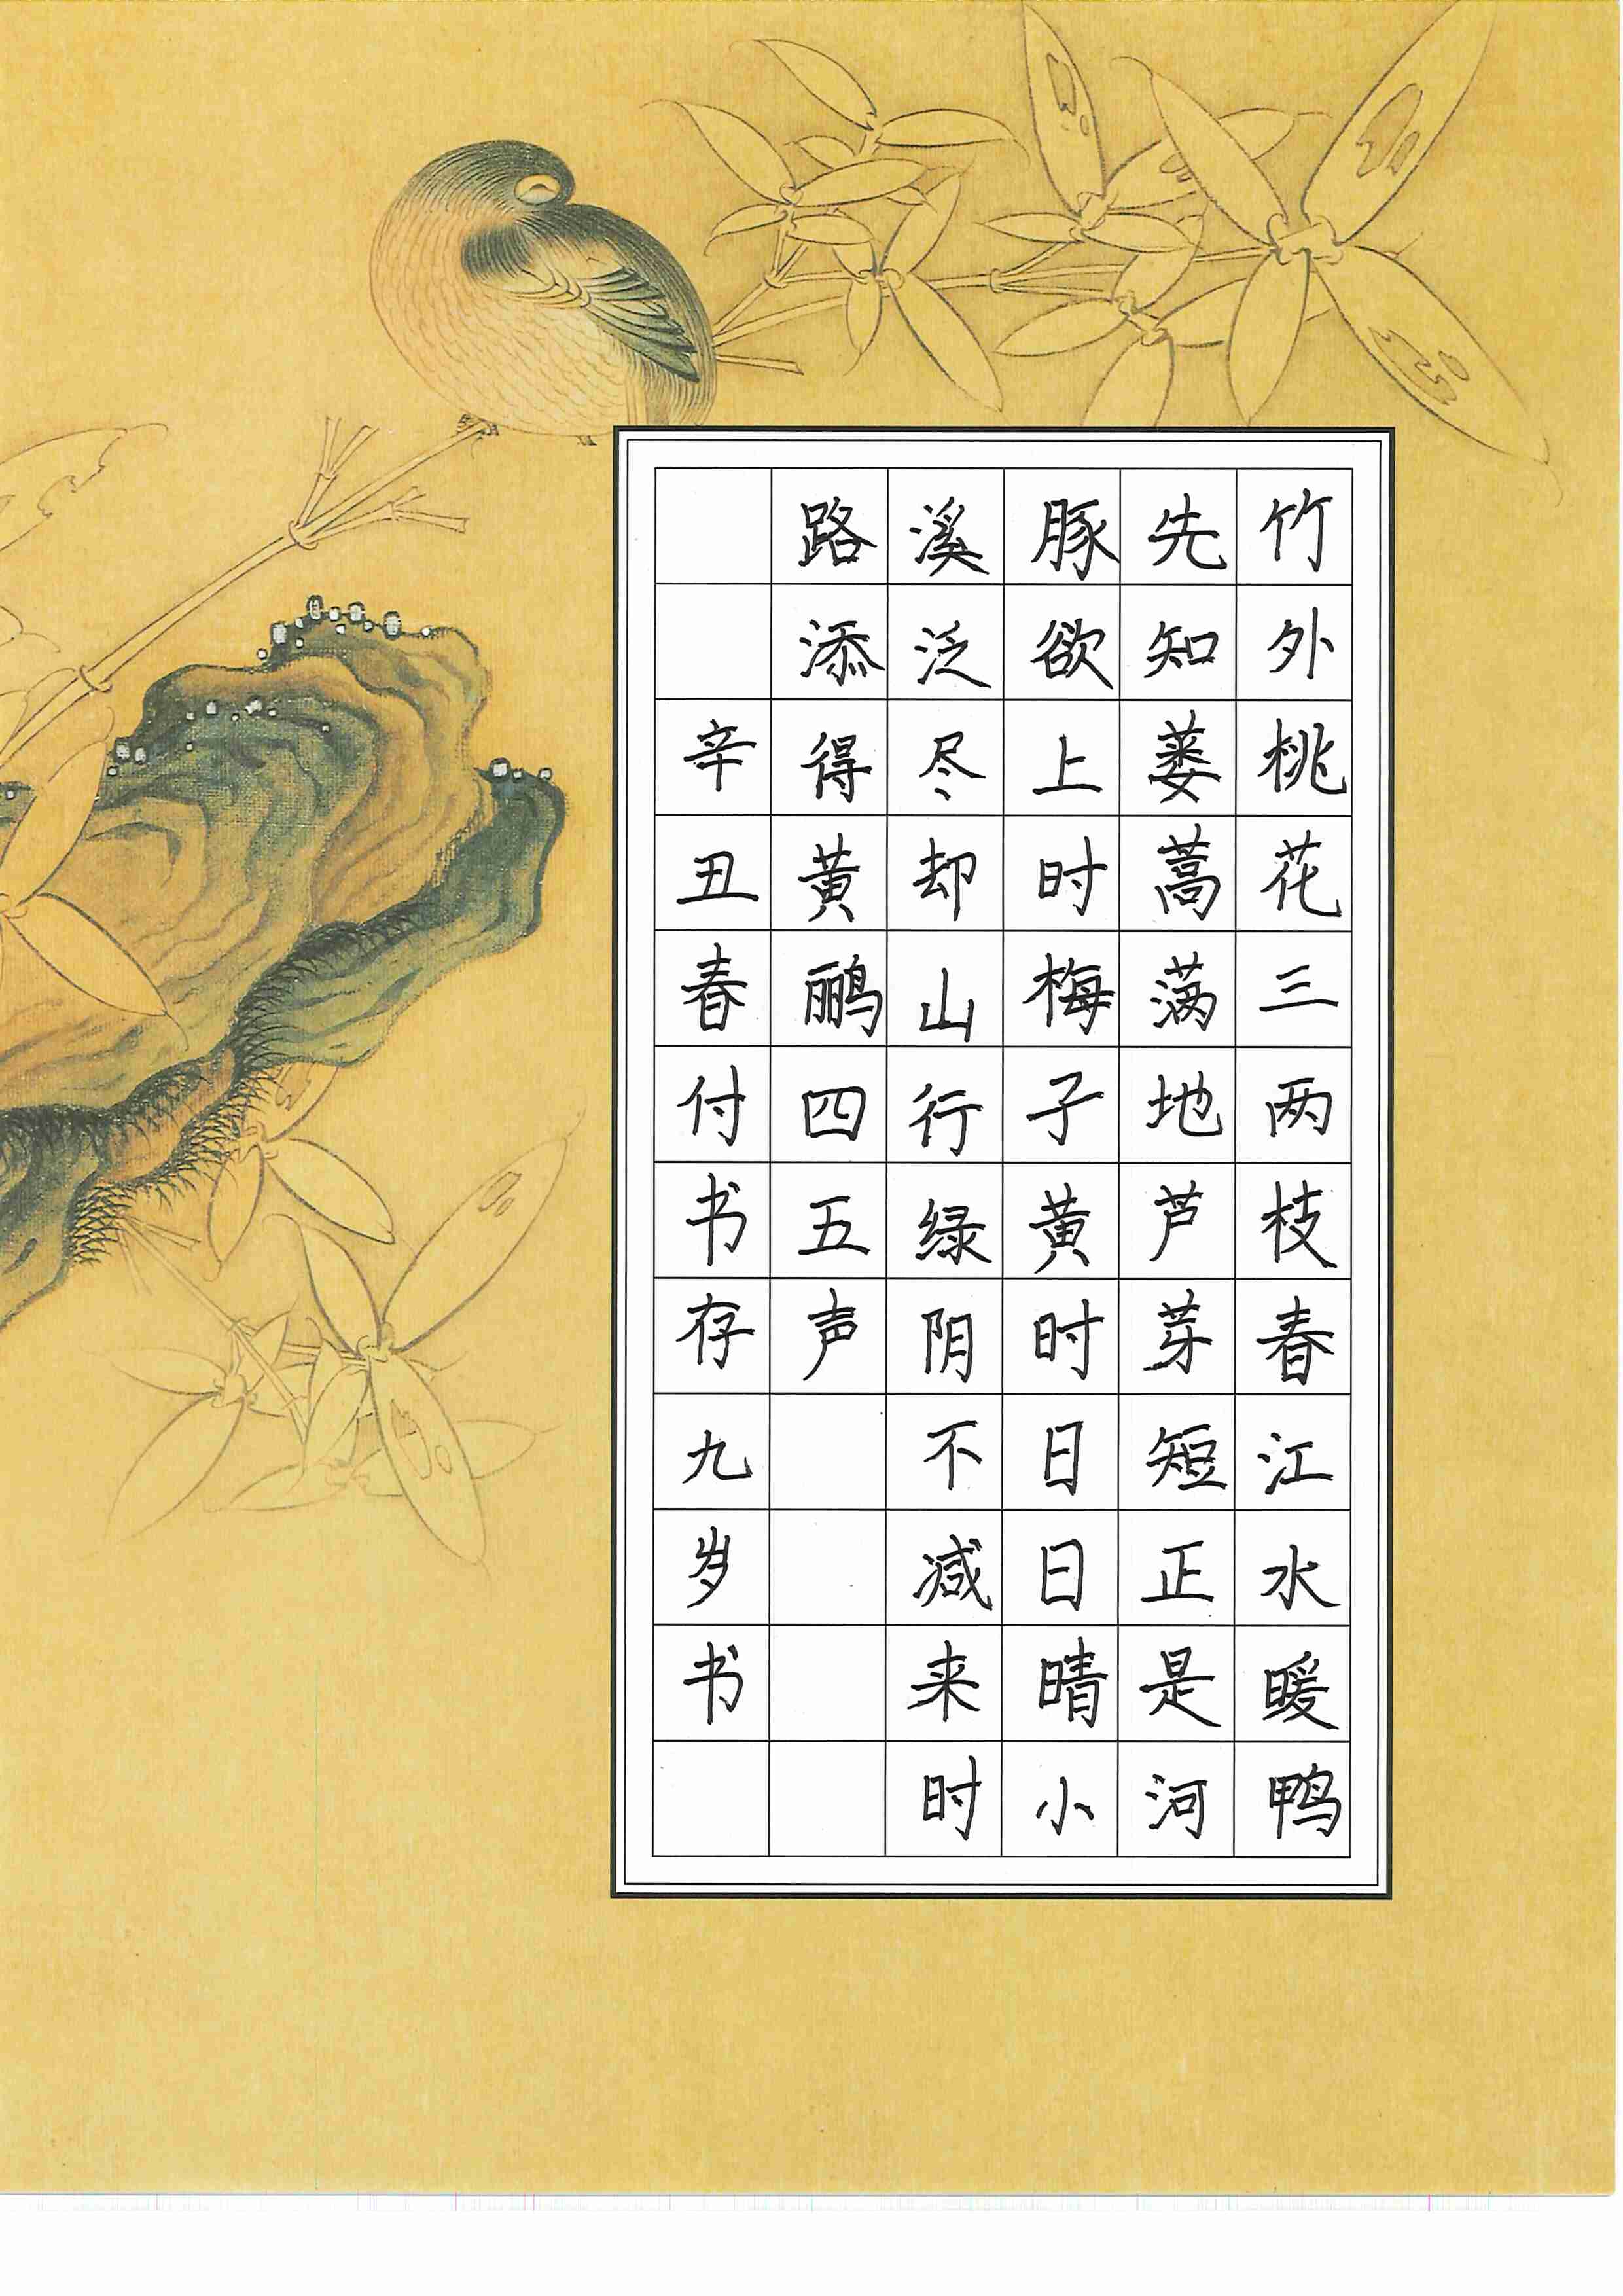 竹外桃花三两枝春江水暖鸭
先知蒌蒿满地芦芽短正是河
豚欲上时梅子黄时日日晴小
溪泛尽却山行绿阴不减来时
路添得黄鹂四五声
辛丑春付书存九岁书